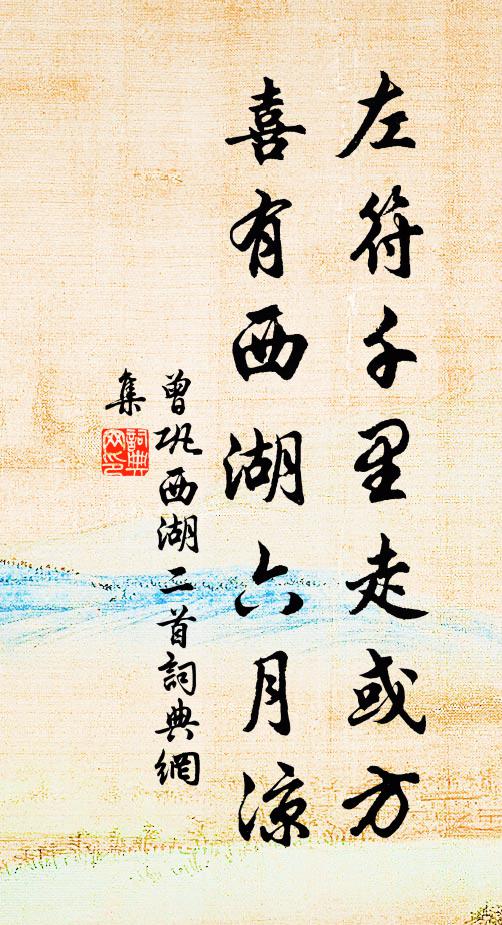 左符千里走或方
喜有西湖六月涼
曾巩西湖二首詞典網
集
詞典網印